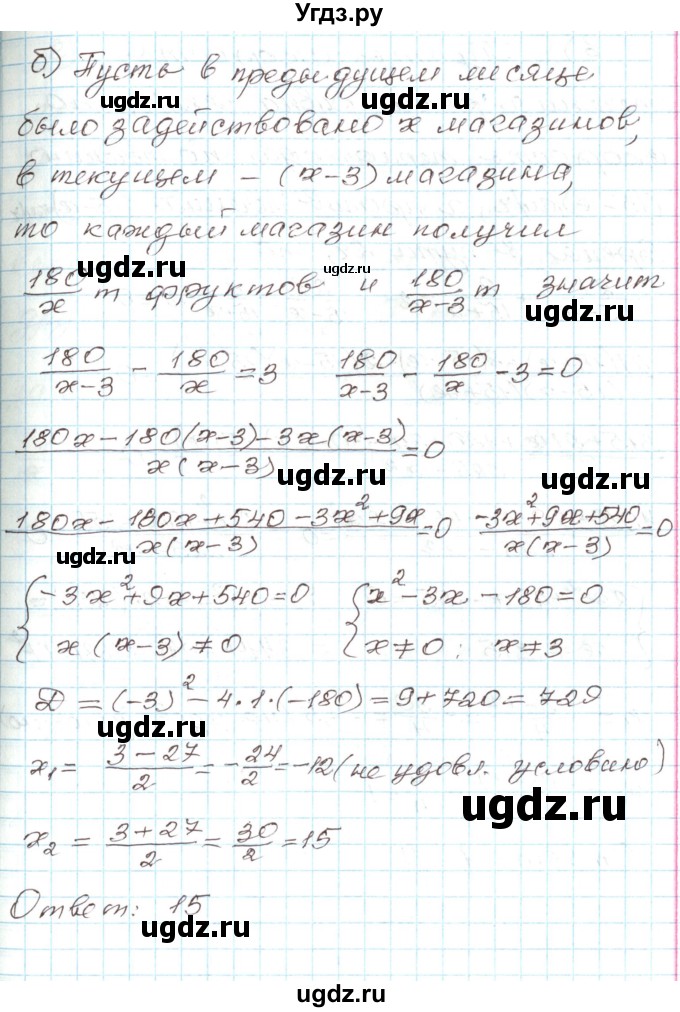 Угдз.ру
б) Пусть в предыдущем месяце
ugdz.ru ugdz.ru
было задействовано x магазинов,
в текущем - (x-3) магазина,
то каждый магазин получил
ugdz.ru ugdz.ru
180/x т фруктов и 180/(x-3) т значит
180/(x-3) - 180/x = 3 180/(x-3) - 180/x - 3 = 0
(180x - 180(x-3) - 3x(x-3))/(x(x-3)) = 0
ugdz.ru ugdz.ru
(180x - 180x + 540 - 3x² + 9x)/(x(x-3)) = 0 (-3x² + 9x + 540)/(x(x-3)) = 0
ugdz.ru
{ -3x² + 9x + 540 = 0 { x² - 3x - 180 = 0
x(x-3) ≠ 0 x ≠ 0; x ≠ 3
ugdz.ru
Д = (-3)² - 4·1·(-180) = 9 + 720 = 729
ugdz.ru
x₁ = (3-27)/2 = -24/2 = -12 (не удовл. условию)
ugdz.ru
x₂ = (3+27)/2 = 30/2 = 15
Ответ: 15
ugdz.ru
ugdz.ru